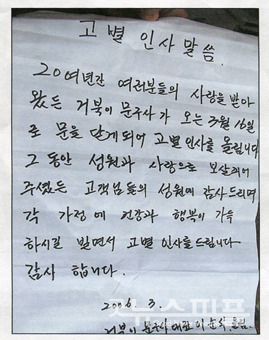 고별 인사말씀.
20여년간 여러분들의 사랑을 받아
왔든 거북이 문구사가 오는 3월 16일
로 문을 닫게되어 고별인사를 올립니다
그 동안 성원과 사랑으로 보살피어
주셨든 고객님들의 성원에 감사드리며
각 가정에 건강과 행복이 가득
하시길 빌면서 고별 인사를 드립니다
감사 합니다.
2006. 3.
거북이 문구사 대표